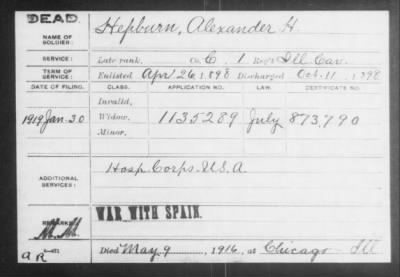 DEAD.
NAME OF SOLDIER: Hepburn, Alexander H.
SERVICE: Late rank, Co. C, 1 Reg't Ill Cav.
TERM OF SERVICE: Enlisted Apr 26, 1898 Discharged Oct. 11, 1898
DATE OF FILING. CLASS. APPLICATION NO. LAW. CERTIFICATE NO.
Invalid,
1919 Jan. 30 Widow, 1135289 July 873,790
Minor,
ADDITIONAL SERVICES: Hosp Corps. U.S.A.
WAR WITH SPAIN.
REMARKS:
Died May 9, 1916, at Chicago - Ill
A R